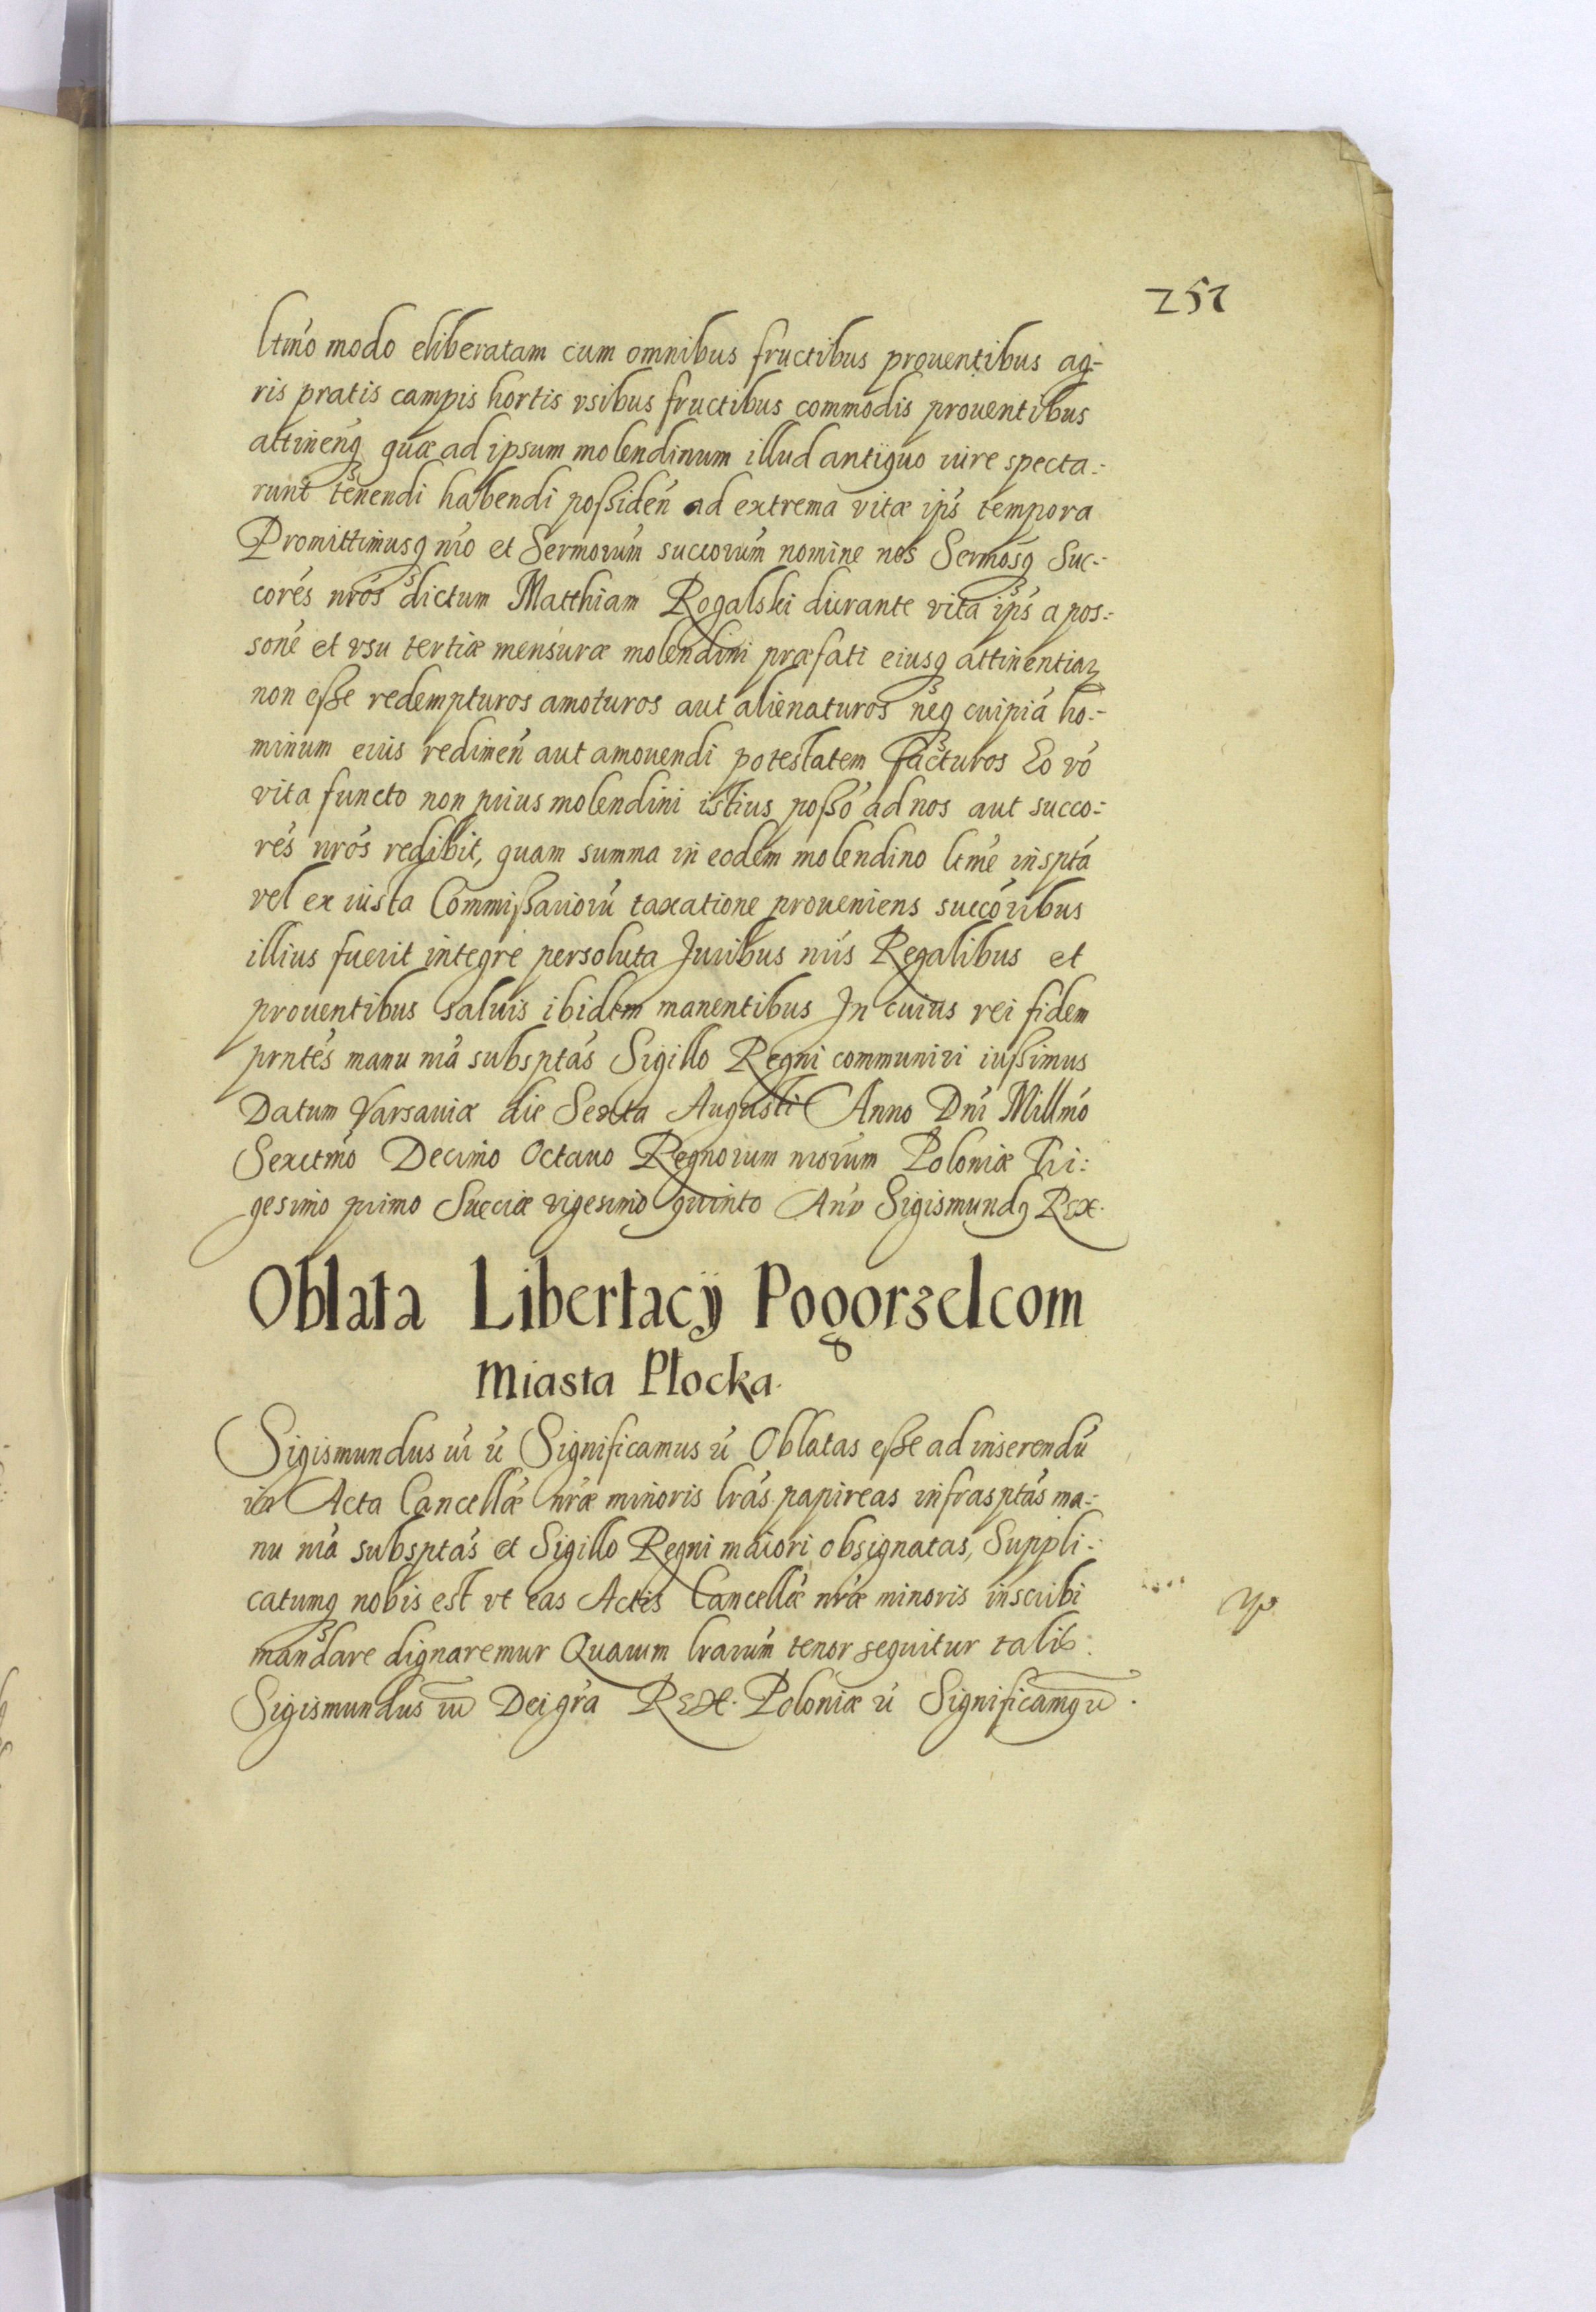 257
ltmo modo eliberatam cum omnibus fructibus prouentibus ag-
ris pratis campis hortis vsibus fructibus commodis prouentibus
attinenq quæ ad ipsum molendinum illud antiquo iure specta-
runt tenendi habendi poßiden ad extrema vitæ ips tempora
Promittimusq nro et Sermorum succorum nomine nos Sermosq Suc-
cores nros dictum Matthiam Rogalski durante vita ips a pos-
sone et vsu tertiæ mensuræ molendini præfati eiusq attinentiaꝝ
non eße redempturos amoturos aut alienaturos neq cuipiā ho-
minum eius redimen aut amouendi potestatem facturos Eo vo
vita functo non prius molendini istius poßo ad nos aut succo-
res nros redibit, quam summa in eodem molendino ltme inspta
vel ex iusta Commißariorū taxatione proueniens succoribus
illius fuerit integre persoluta Juribus nris Regalibus et
prouentibus saluis ibidem manentibus In cuius rei fidem
prntes manu nra subsptas Sigillo Regni communiri iußimus
Datum Varsauiæ die Sexta Augusti Anno Dni Millmo
Sexctmo Decimo Octauo Regnorum nrorum Poloniæ Tri-
gesimo primo Sueciæ vigesimo quinto Anno Sigismundq Rex.
Oblata Libertacÿ Pogorzelcom
Miasta Płocka.
Sigismundus iii ū Significamus ū Oblatas eße ad inserendū
in Acta Cancellæ nræ minoris lras papireas infrasptas ma-
nu nra subsptas et Sigillo Regni maiori obsignatas, Suppli-
catumq nobis est vt eas Actis Cancellæ nræ minoris inscribi
mandare dignaremur Quarum lrarum tenor sequitur talis:
Sigismundus iii Dei gra Rex. Poloniæ ū Significamq ū.